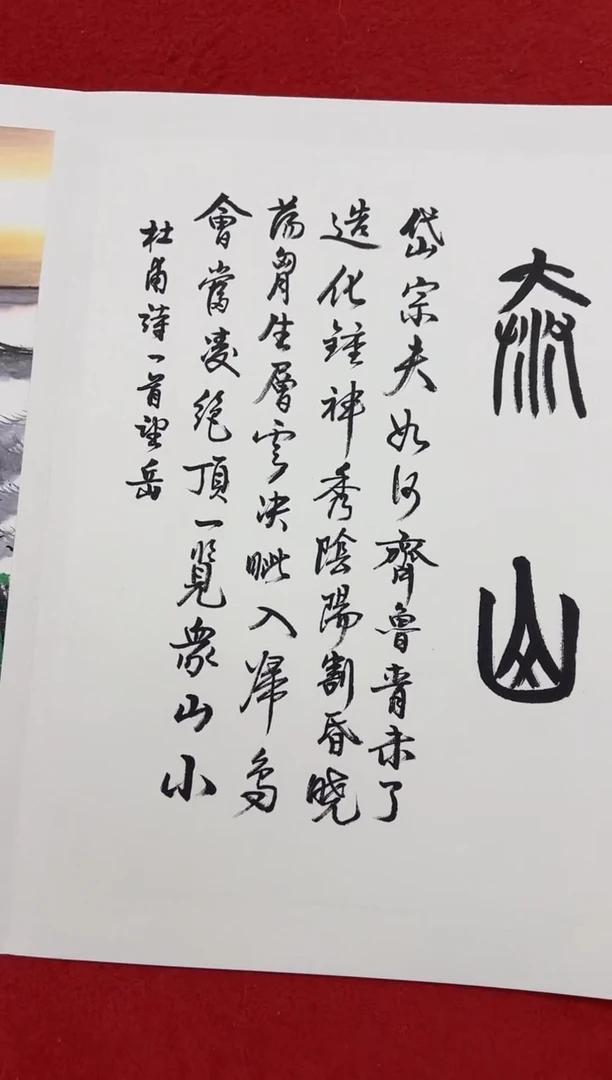 泰山
岱宗夫如何齊魯青未了
造化鍾神秀陰陽割昏晓
荡胷生層雲决眦入歸鳥
會當凌絕頂一覽衆山小
杜甫詩一首望岳